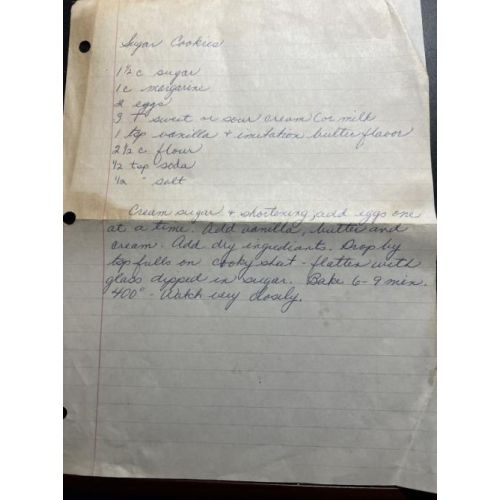 Sugar Cookies
1 1/2 c sugar
1 c margarine
2 eggs
3 T sweet or sour cream (or milk
1 tsp vanilla + imitation butter flavor
2 1/2 c flour
1/2 tsp soda
1/2 " salt
Cream sugar + shortening, add eggs one
at a time. Add vanilla, butter and
cream. Add dry ingredients. Drop by
tsp fulls on cooky sheet - flatten with
glass dipped in sugar. Bake 6-9 min.
400° - Watch very closely.